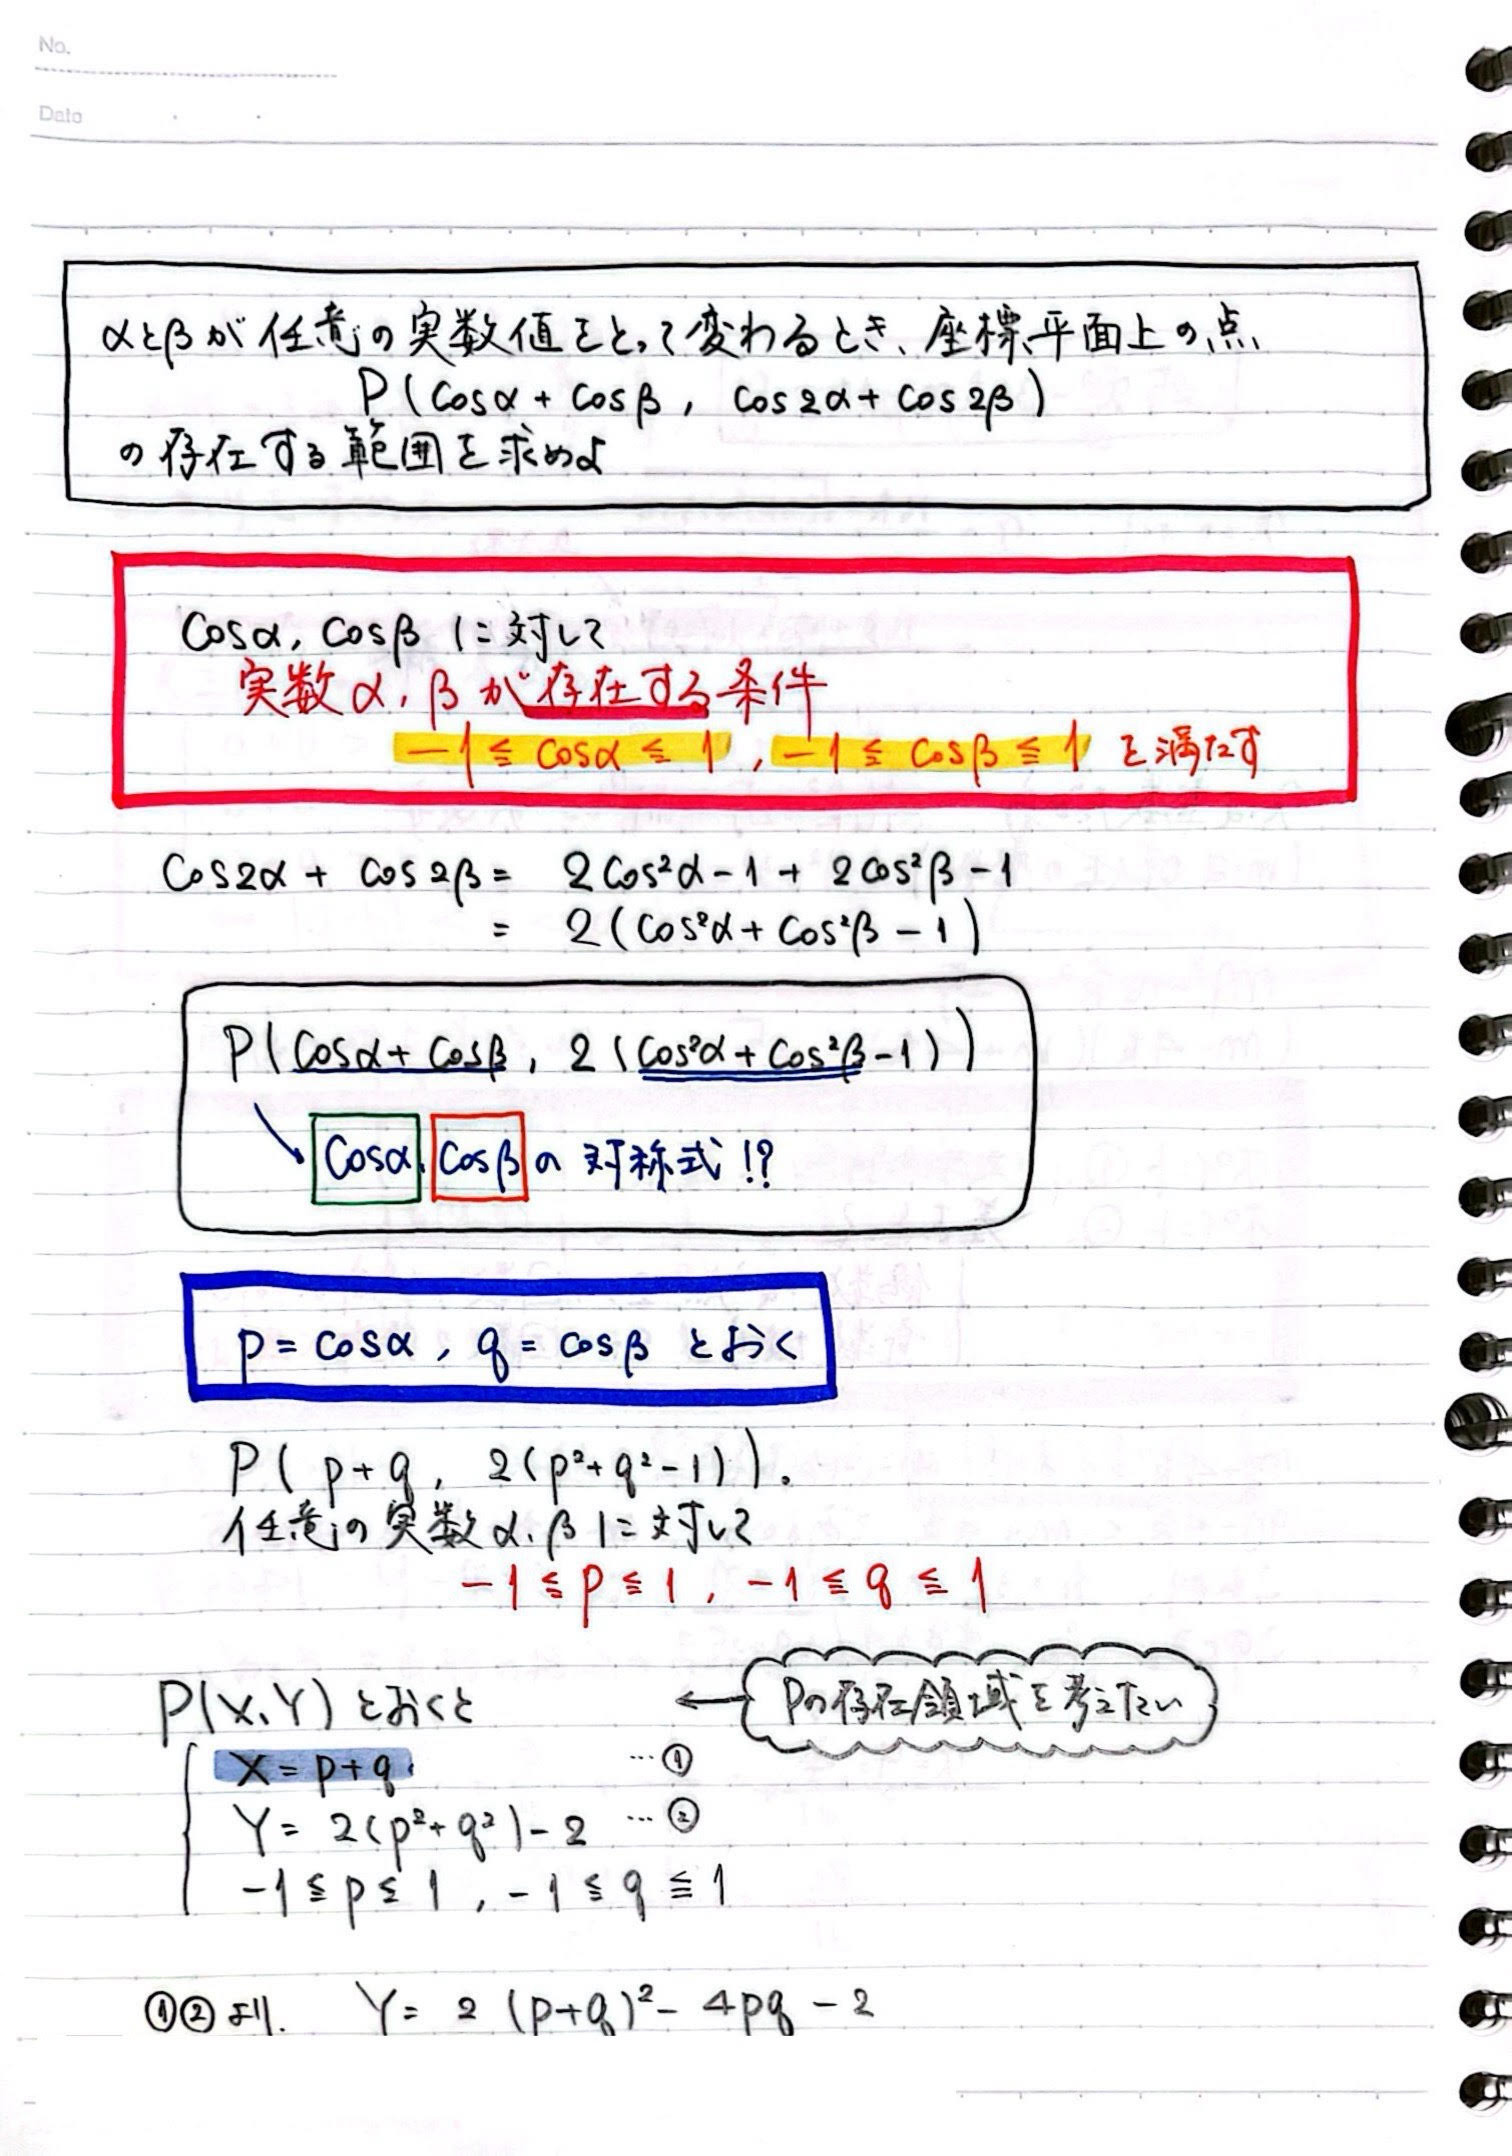 No.
Date
αとβが任意の実数値をとって変わるとき、座標平面上の点
P(cosα + cosβ, cos2α + cos2β)
の存在する範囲を求めよ
cosα, cosβ に対して
実数α, βが存在する条件
-1 ≦ cosα ≦ 1, -1 ≦ cosβ ≦ 1 を満たす
cos2α + cos2β = 2cos²α-1 + 2cos²β-1
= 2(cos²α + cos²β - 1)
P(cosα + cosβ, 2(cos²α + cos²β-1))
cosα, cosβ の 対称式!?
p = cosα, q = cosβ とおく
P(p+q, 2(p²+q²-1)).
任意の実数α, βに対して
-1 ≦ p ≦ 1, -1 ≦ q ≦ 1
P(X, Y) とおくと ← Pの存在領域を考えたい
X = p+q …①
Y = 2(p²+q²)-2 …②
-1 ≦ p ≦ 1, -1 ≦ q ≦ 1
①②より. Y = 2(p+q)² - 4pq - 2